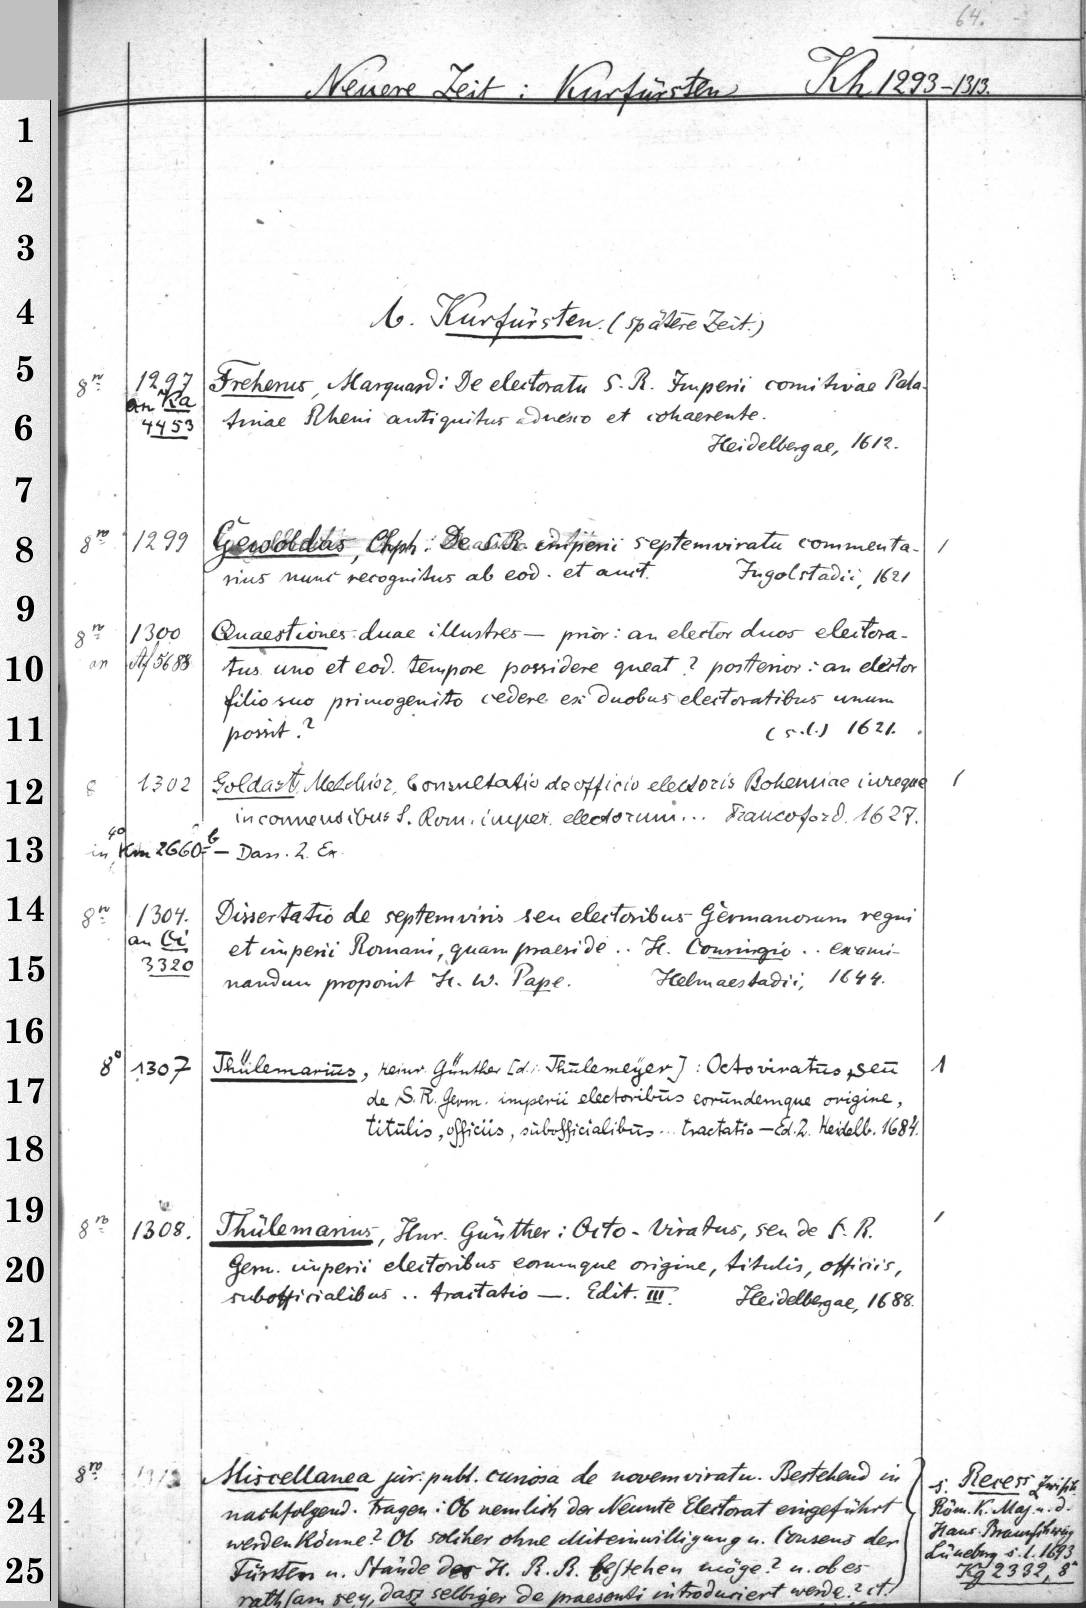 64.
Neuere Zeit : Kurfürsten Kh 1293-1313.
1
2
3
4
b. Kurfürsten. (spätere Zeit.)
5
8vo 1297 Freherus, Marquard: De electoratu S. R. Imperii comitivae Pala-
an Ka
6
4453 tinae Rheni antiquitus adnexo et cohaerente.
Heidelbergae, 1612.
7
8
8vo 1299 Gewoldus, Chph.: De S. R. imperii septemviratu commenta- 1
rius nunc recognitus ab eod. et auct. Ingolstadii, 1621
9
8vo 1300 Quaestiones duae illustres — prior: an elector duos electora-
10
an Af 5688 tus uno et eod. tempore possidere queat? posterior: an elector
filio suo primogenito cedere ex duobus electoratibus unum
11
possit? (s.l.) 1621.
12
8 1302 Goldast, Melchior, Consultatio de officio electoris Bohemiae iureque 1
in connensibus S. Rom. imper. electorum... Francoford. 1627.
13
in 4o Km 2660b — Dass. 2. Ex.
14
8vo 1304. Dissertatio de septemviris seu electoribus Germanorum regni
an Ci
15
3320 et imperii Romani, quam praeside .. H. Conringio .. exami-
nandum proponit H. W. Pape. Helmaestadii, 1644.
16
8o 1307 Thülemarius, Heinr. Günther [d.i. Thülemeyer] : Octoviratus, seu 1
17
de S. R. Germ. imperii electoribus eorundemque origine,
18
titulis, officiis, subofficialibus... tractatio — Ed. 2. Heidelb. 1684.
19
8vo 1308. Thülemarius, Henr. Günther: Octo-Viratus, seu de S. R. 1
20
Germ. imperii electoribus eorumque origine, titulis, officiis,
subofficialibus .. tractatio —. Edit. III. Heidelbergae, 1688.
21
22
23
8vo 1313 Miscellanea jur. publ. curiosa de novemviratu. Bestehend in
24
nachfolgend. Fragen: Ob nemlich der Neunte Electorat eingeführt
werden könne? Ob solcher ohne Miteinwilligung u. Consens der
25
Fürsten u. Stände des H. R. R. bestehen möge? u. ob es
rathsam sey, dasz selbiger de praesenti introduciert werde? et.
s. Recess zwisch.
Röm. K. Maj. u. d.
Haus Braunschweig
Lüneburg s. l. 1693
Kg 2332, 8o